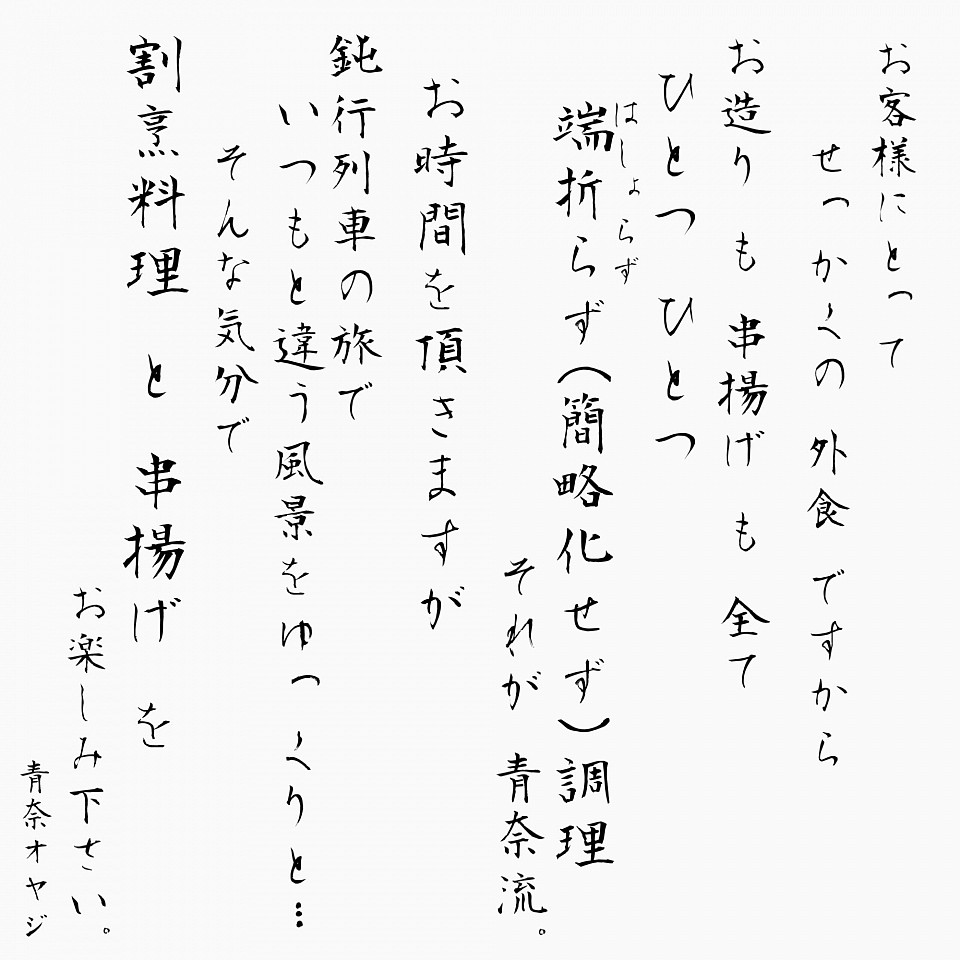 お客様にとって
せっかくの 外食 ですから
お造りも 串揚げも 全て
ひとつ ひとつ
はしょらず
端折らず(簡略化せず)調理
それが 青奈流。
お時間を頂きますが
鈍行列車の旅で
いつもと違う風景をゆっくりと…
そんな気分で
割烹料理 と 串揚げ を
お楽しみ下さい。
青奈オヤジ